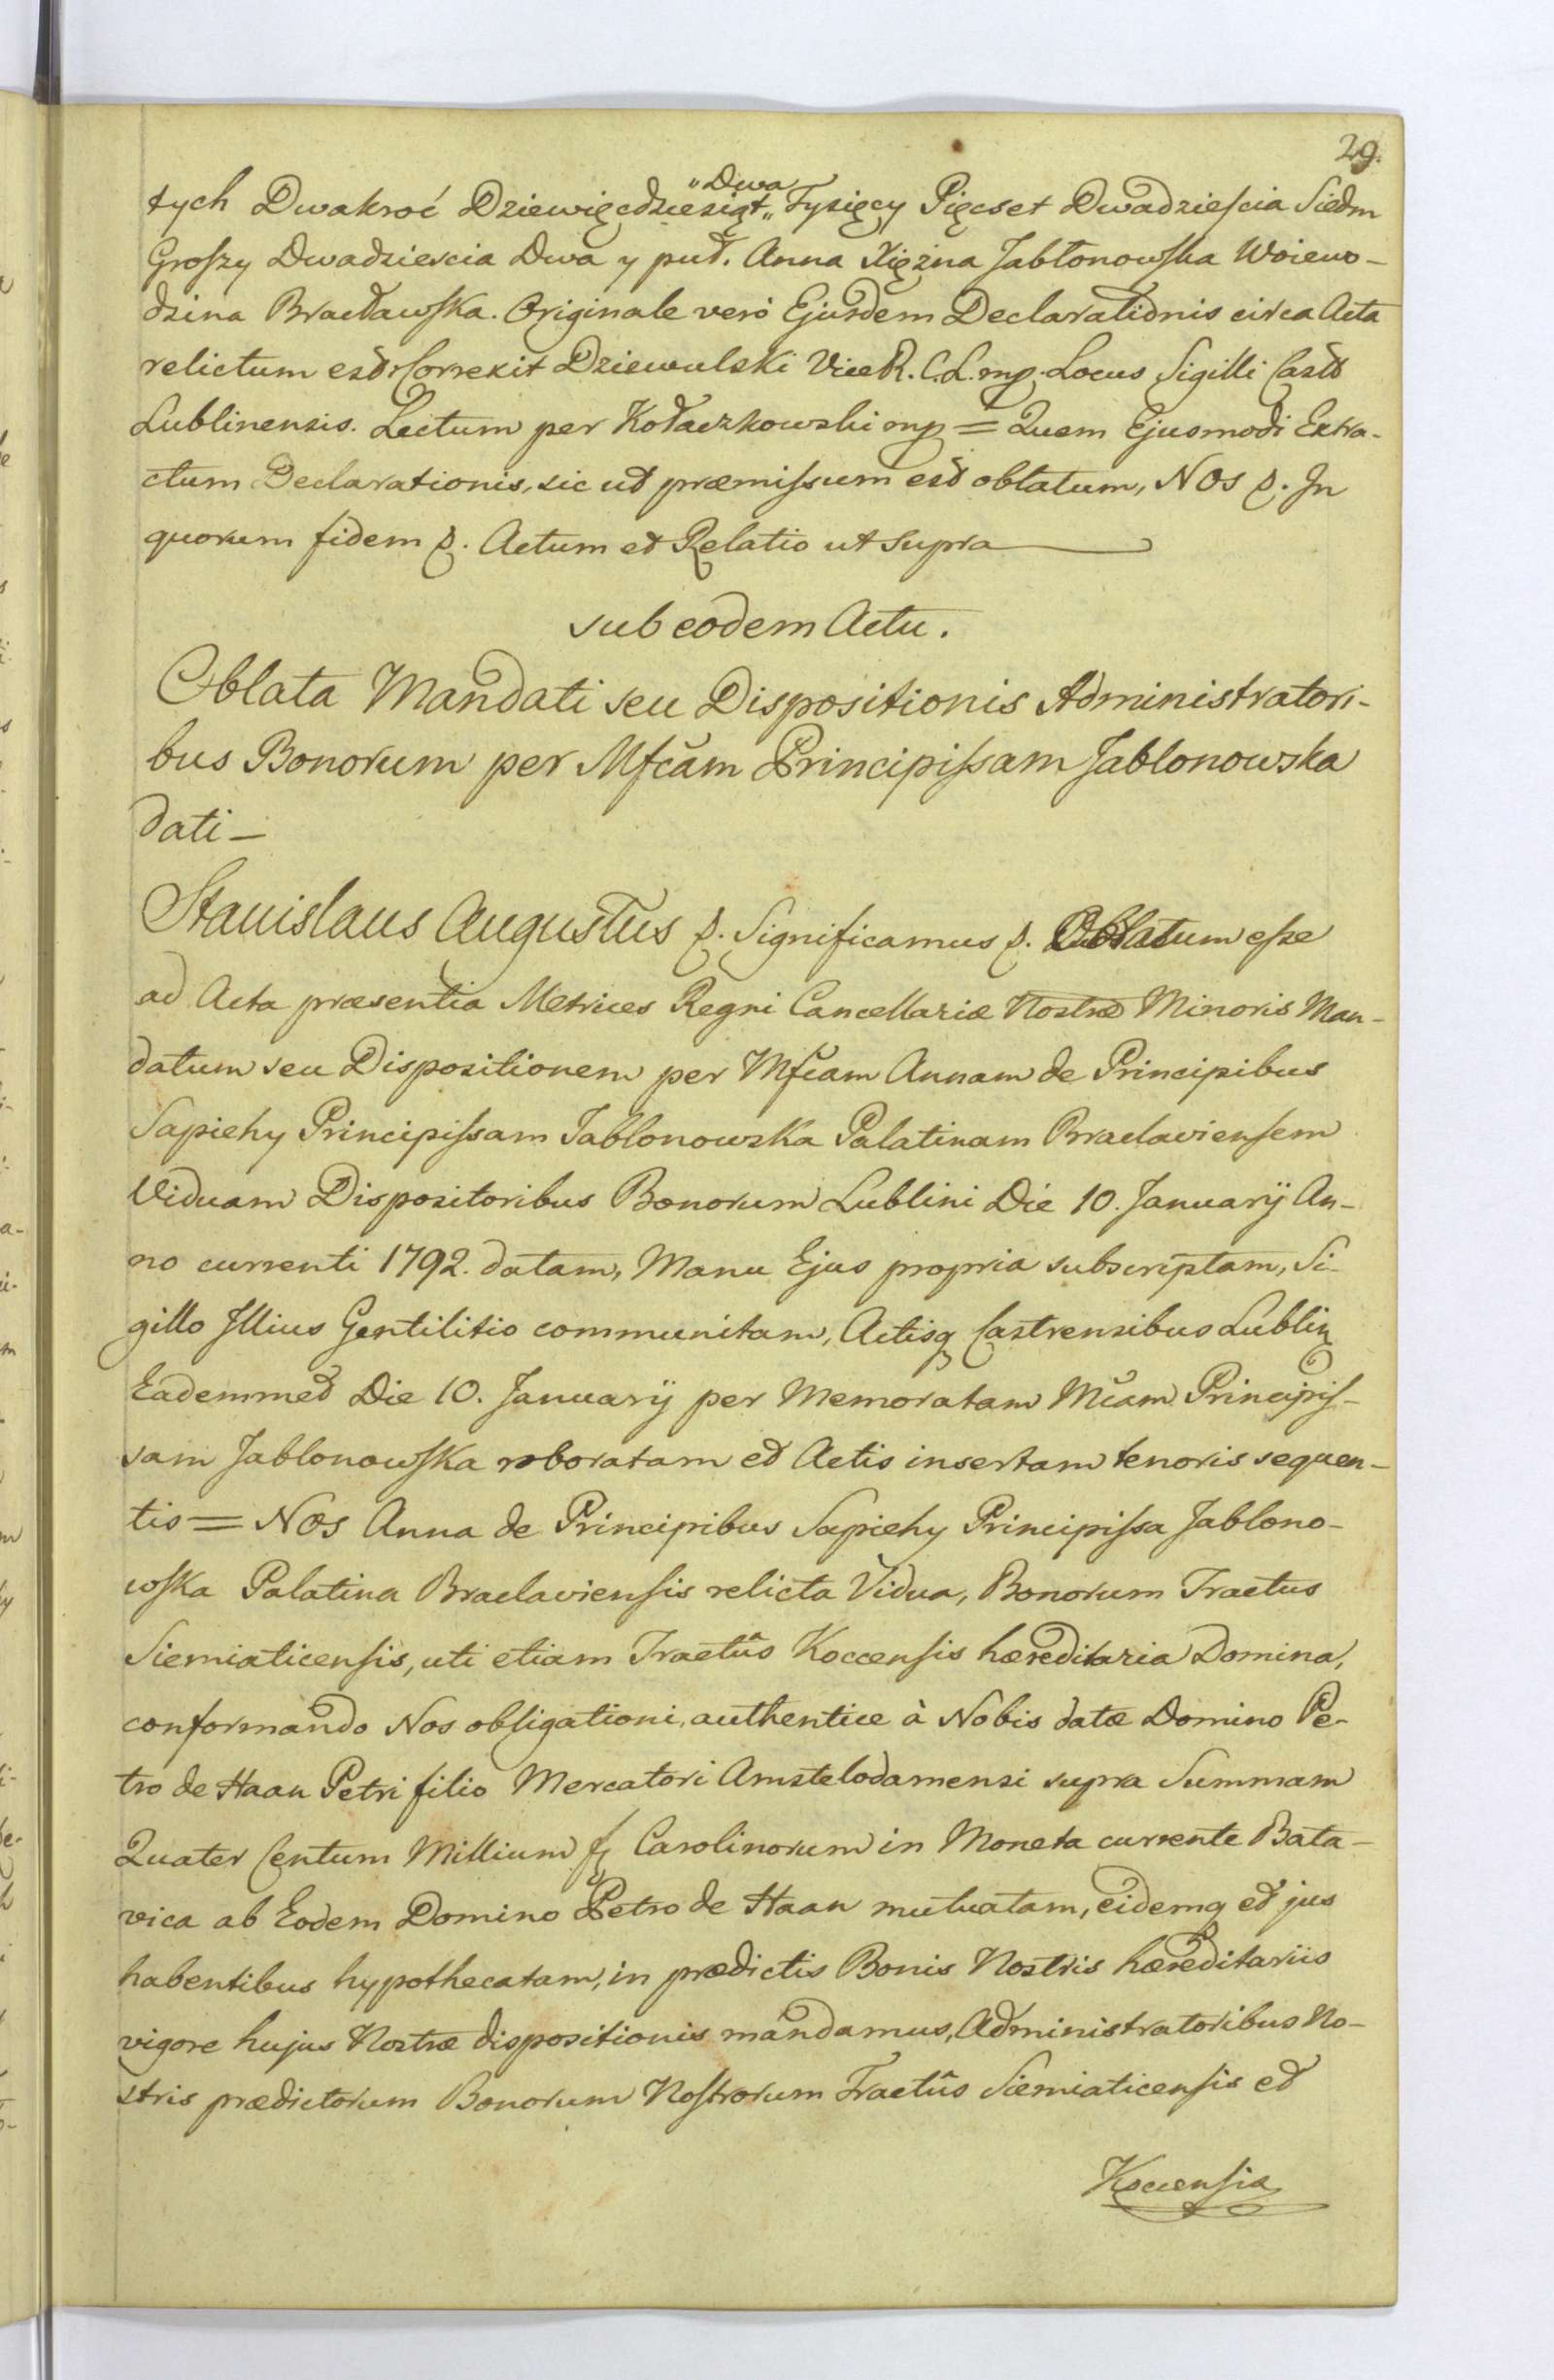 29.
tych Dwakroć Dziewięcdziesiąt „Dwa„ Tysięcy Pięcset Dwadzieścia Siedm
Groszy Dwadziescia Dwa y puł. Anna Xiężna Jabłonowska Woiewo-
dzina Bracławska. Originale verò Ejusdem Declarationis circa Acta
relictum est Correxit Dziewulski Vice R. C. L. mp. Locus Sigilli Cast
Lublinensis. Lectum per Kołaczkowski mp = Quem Ejusmodi Extra-
ctum Declarationis, sic ut præmissum est oblatum, Nos &. In
quorum fidem &. Actum et Relatio ut Supra
sub eodem Actu.
Oblata Mandati seu Dispositionis Administratori-
bus Bonorum per Mfcam Principissam Jablonowska
dati –
Stanislaus Augustus &. Significamus &. Oblatum esse
ad Acta præsentia Metrices Regni Cancellariæ Nostræ Minoris Man-
datum seu Dispositionem per Mfcam Annam de Principibus
Sapiehy Principissam Jablonowska Palatinam Braclaviensem
Viduam Dispositoribus Bonorum Lublini Die 10. Januarij An-
no currenti 1792. datam, Manu Ejus propria subscriptam, Si-
gillo Illius Gentilitio communitam, Actisq Castrensibus Lublin
Eademmet Die 10. Januarij per Memoratam Mcam Principis-
sam Jablonowska roboratam et Actis insertam tenoris sequen-
tis = Nos Anna de Principibus Sapiehy Principissa Jablono-
wska Palatina Braclaviensis relicta Vidua, Bonorum Tractus
Siemiaticensis, uti etiam Tractûs Koccensis hæreditaria Domina,
conformando Nos obligationi, authentice à Nobis datæ Domino Pe-
tro de Haan Petri filio Mercatori Amstelodamensi supra Summam
Quater Centum Millium fl Carolinorum in Moneta currente Bata-
vica ab Eodem Domino Petro de Haan mutuatam, eidemq et jus
habentibus hypothecatam, in prædictis Bonis Nostris hæreditariis
vigore hujus Nostræ dispositionis mandamus, Administratoribus No-
stris prædictorum Bonorum Nostrorum Tractûs Siemiaticensis et
Koccensis